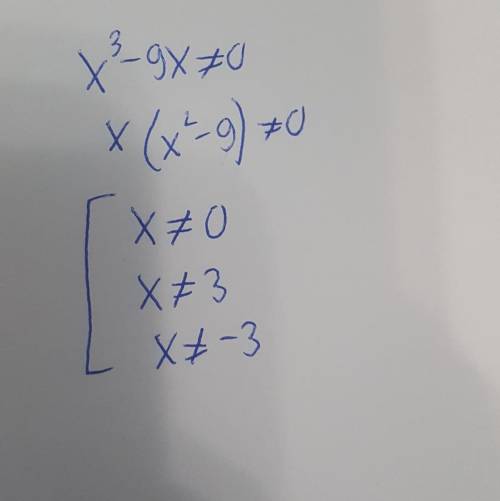 x³-9x≠0
x(x²-9)≠0
x≠0
x≠3
x≠-3